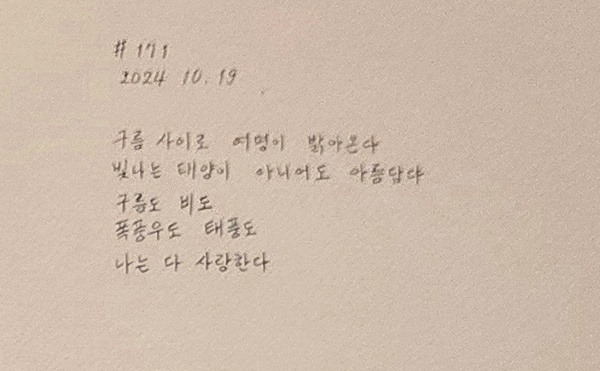 # 171
2024 10. 19
구름 사이로 여명이 밝아온다
빛나는 태양이 아니어도 아름답다
구름도 비도
폭풍우도 태풍도
나는 다 사랑한다